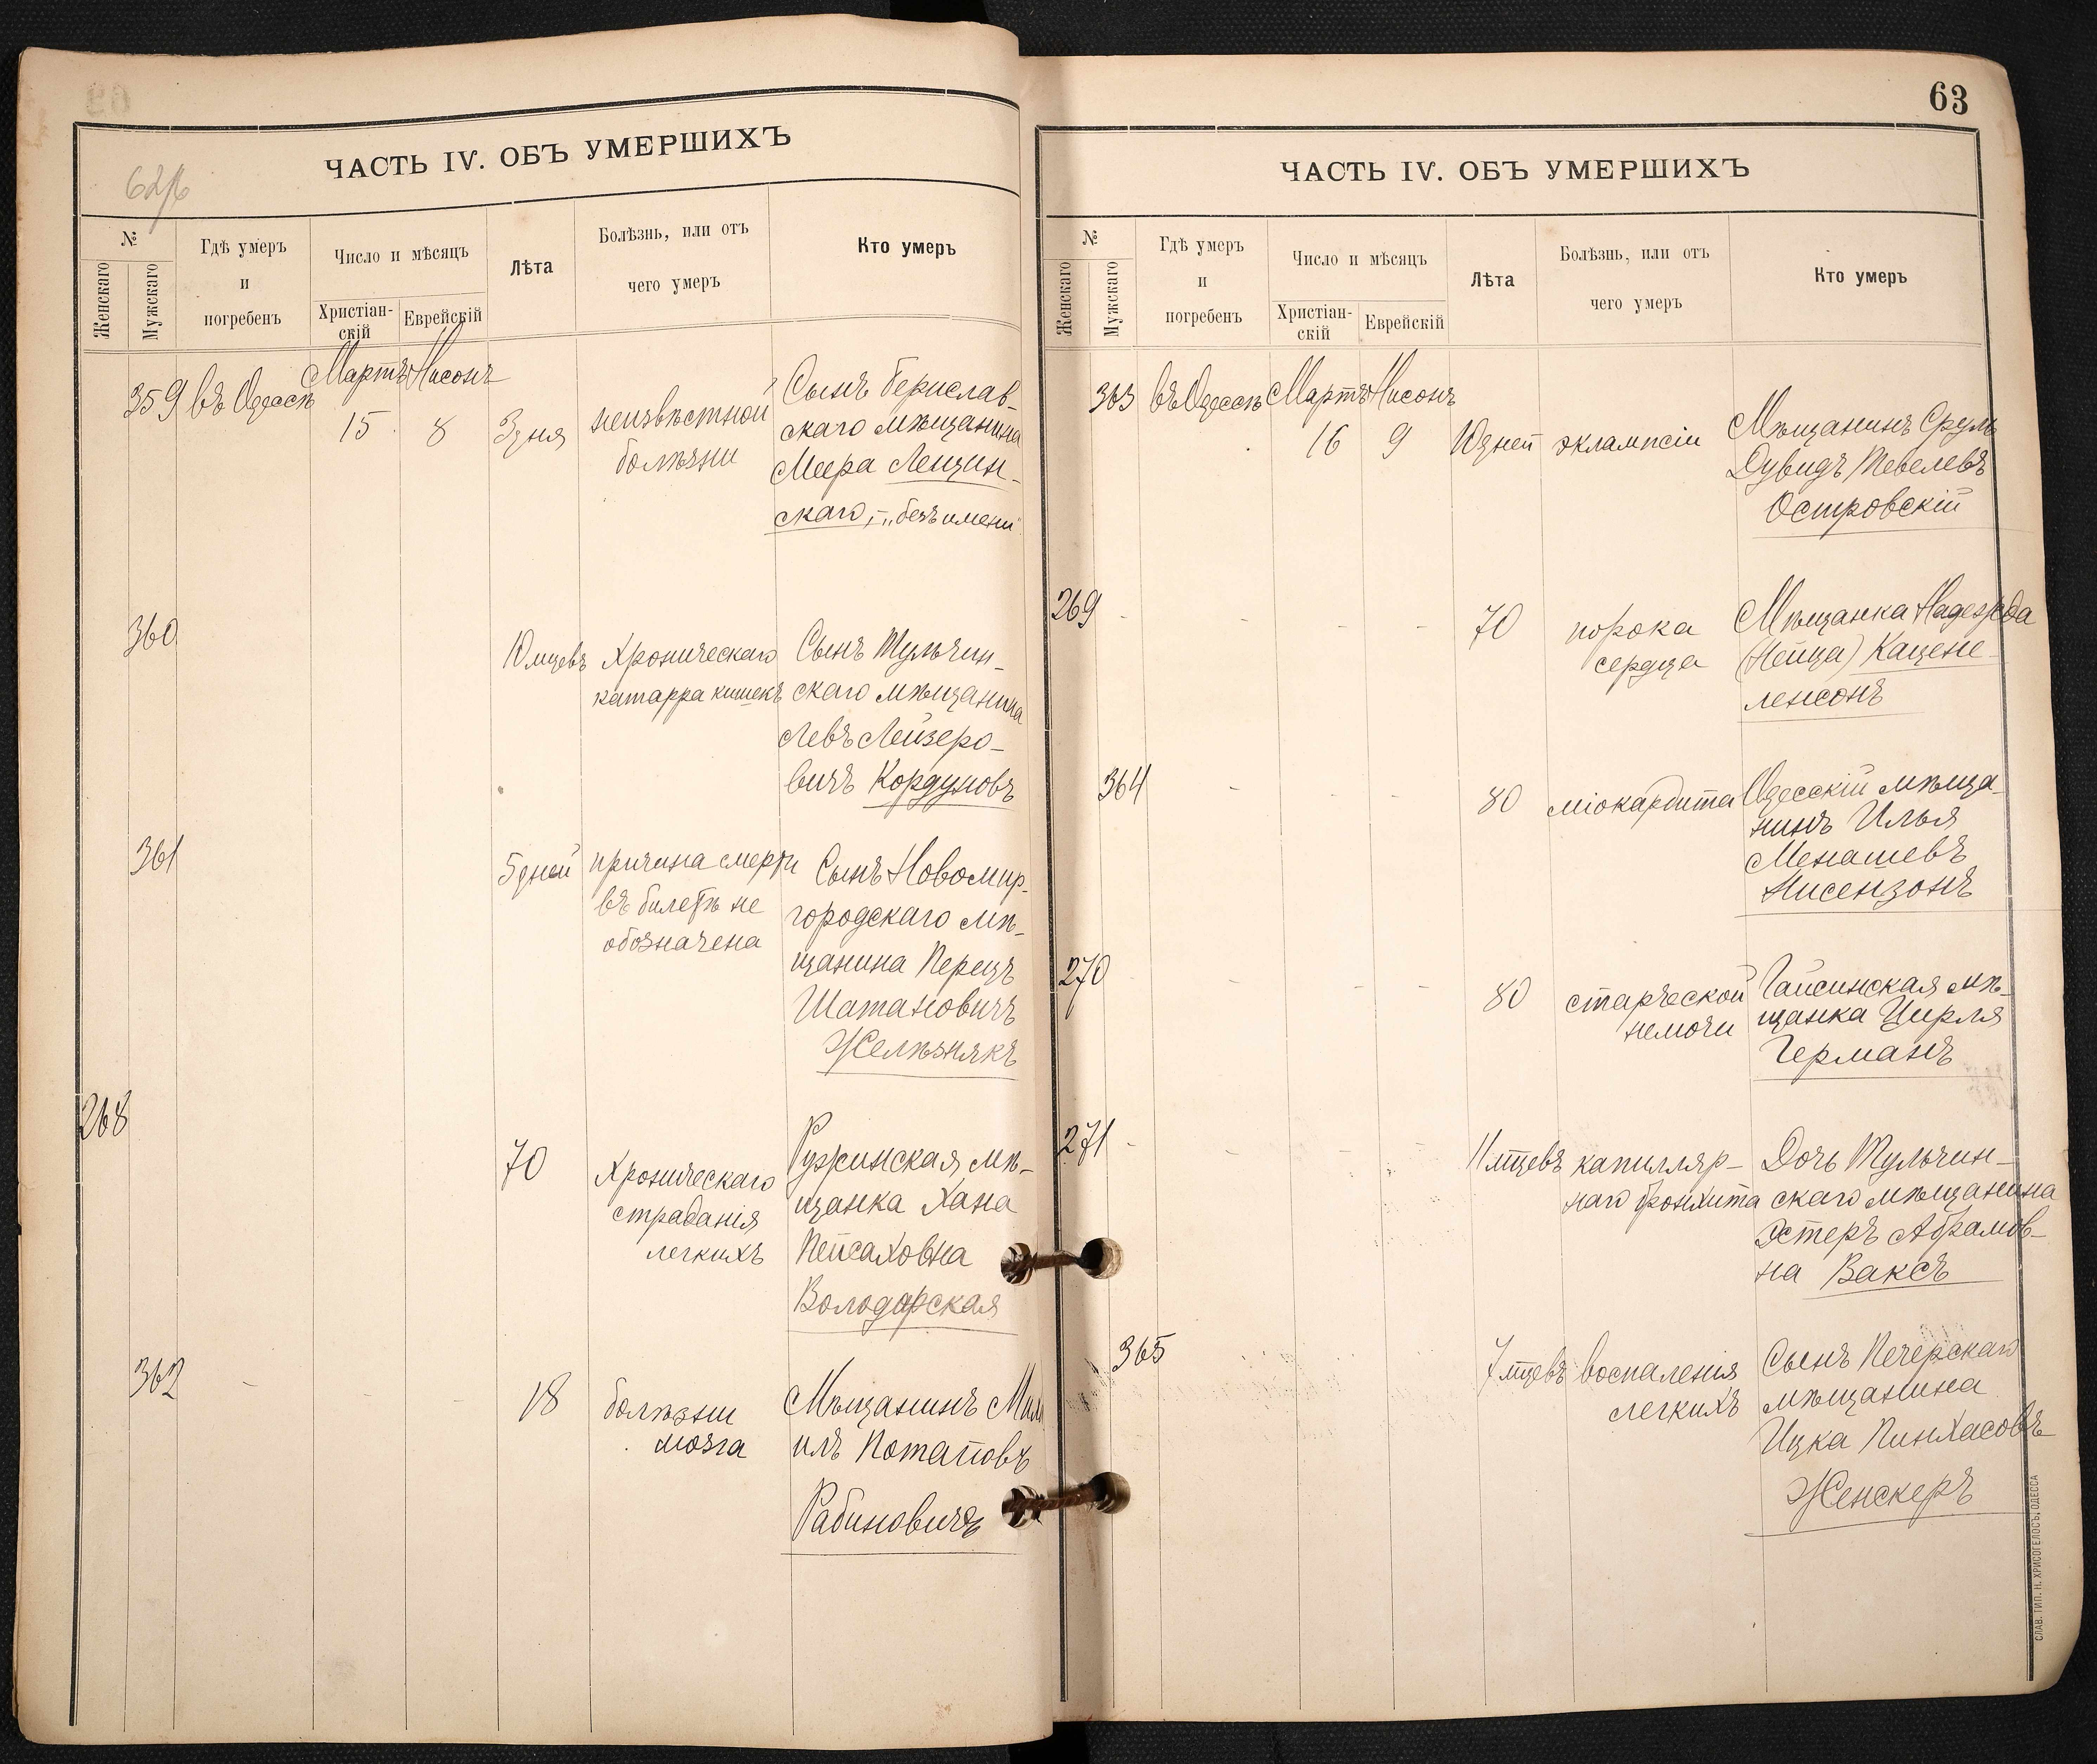 62/б
ЧАСТЬ IV. ОБЪ УМЕРШИХЪ
№
Женскаго
Мужскаго
Гдѣ умеръ
и
погребенъ
Число и мѣсяцъ
Христіан-
скій
Еврейскій
Лѣта
Болѣзнь, или отъ
чего умеръ
Кто умеръ
359
въ Одессѣ
Мартъ
15
Нисонъ
8
3 дня
неизвѣстной
болѣзни
Сынъ Берислав-
скаго мѣщанина
Меера Лещин-
скаго, - „безъ имени"
360
10 мцевъ
Хроническаго
катарра кишекъ
Сынъ Тульчин-
скаго мѣщанина
Левъ Лейзеро-
вичъ Кордуновъ
361
5 дней
причина смерти
въ билетѣ не
обозначена
Сынъ Новомир-
городскаго мѣ-
щанина Перецъ
Шатановичъ
Желѣзнякъ
268
70
Хроническаго
страданія
легкихъ
Ружинская мѣ-
щанка Хана
Пейсаховна
Володарская
362
18
болѣзни
мозга
Мѣщанинъ
илъ Потаповъ
Рабиновичъ
63
ЧАСТЬ IV. ОБЪ УМЕРШИХЪ
№
Женскаго
Мужскаго
Гдѣ умеръ
и
погребенъ
Число и мѣсяцъ
Христіан-
скій
Еврейскій
Лѣта
Болѣзнь, или отъ
чего умеръ
Кто умеръ
363
въ Одессѣ
Мартъ
16
Нисонъ
9
10 дней
эклампсіи
Мѣщанинъ Сруль
Дувидъ Тевелевъ
Островскій
269
70
порока
сердца
Мѣщанка Надежда
(Нейца) Кацене-
ленсонъ
364
80
міокардита
Одесскій мѣща-
нинъ Илья
Менашевъ
Нисензонъ
270
80
старческой
немочи
Гайсинская мѣ-
щанка Цирля
Германъ
271
11 мцевъ
капилляр-
наго бронхита
Дочь Тульчин-
скаго мѣщанина
Эстеръ Абрамов-
на Ваксъ
365
7 мцевъ
воспаленія
легкихъ
Сынъ Печерскаго
мѣщанина
Ицка Пинхасовъ
Женскеръ
СЛАВ. ТИП. Н. ХРИСОГЕЛОСЪ, ОДЕССА